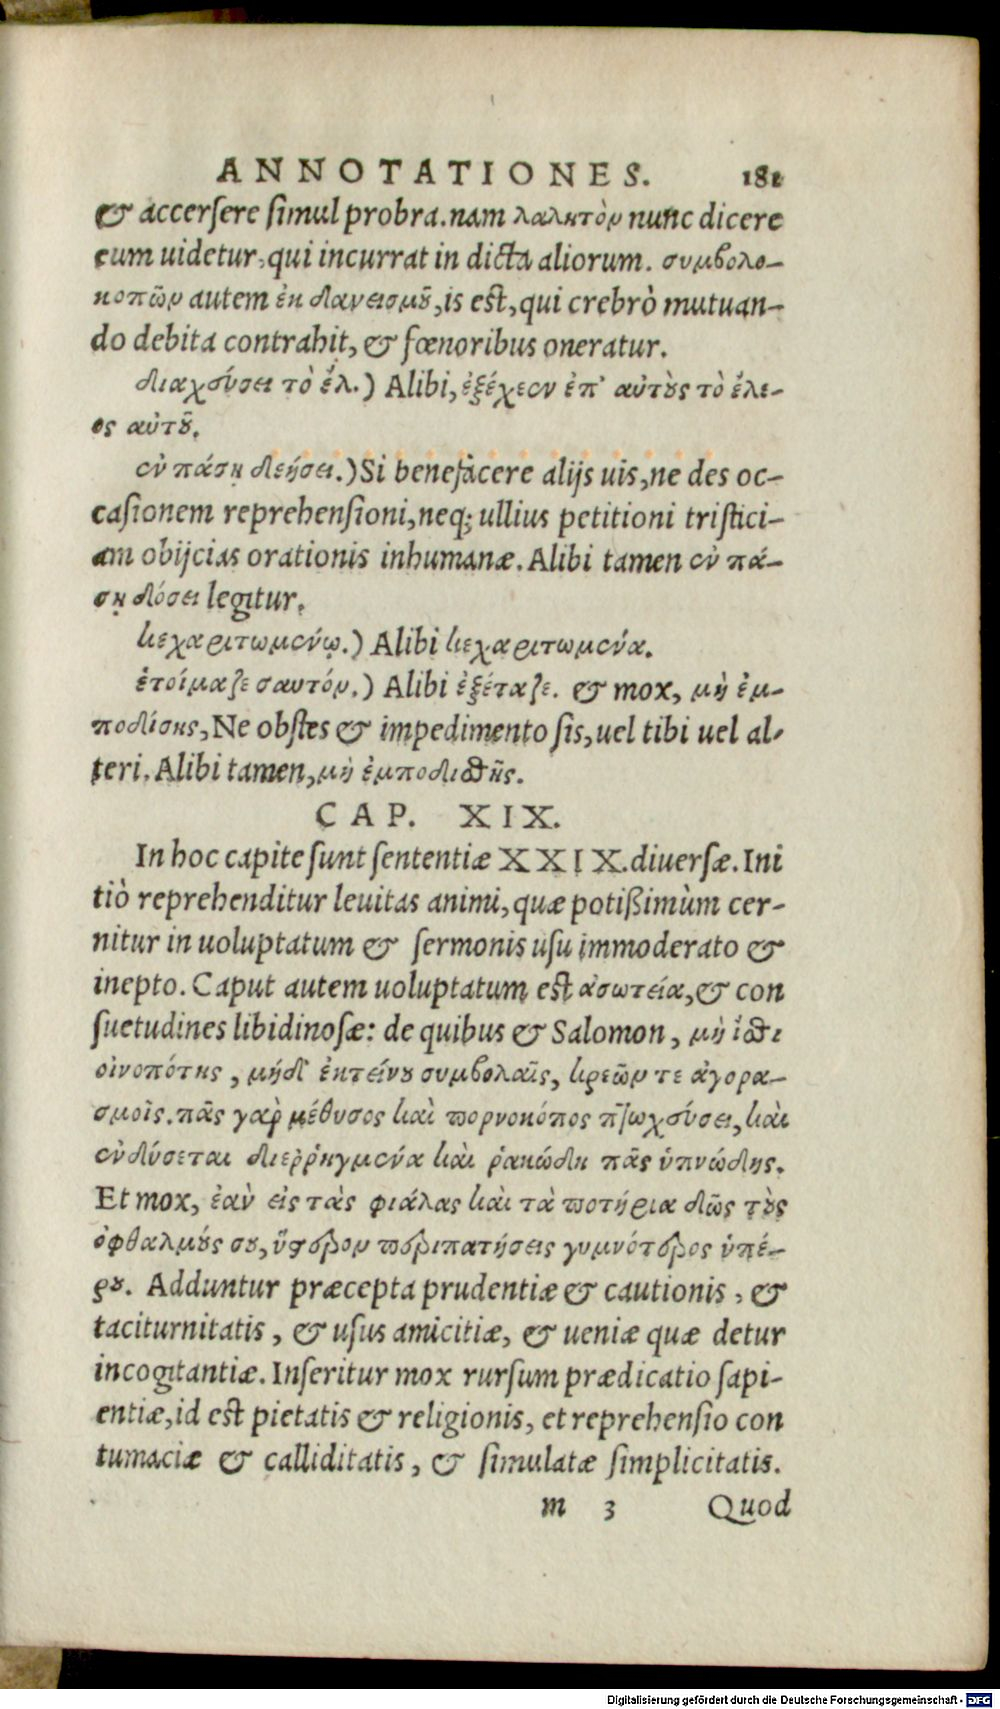 ANNOTATIONES. 181
& accersere simul probra. nam λαλητὸν nunc dicere
eum uidetur, qui incurrat in dicta aliorum. συμβολο-
κοπῶν autem ἐκ δανεισμοῦ, is est, qui crebrò mutuan-
do debita contrahit, & fœnoribus oneratur.
διαχεύσει τὸ ἔλ.) Alibi, ἐξέχεεν ἐπ' αὐτοὺς τὸ ἔλε-
ος αὐτοῦ.
ἐν πάσῃ δεήσει.) Si benefacere alijs uis, ne des oc-
casionem reprehensioni, neq; ullius petitioni tristici-
am obijcias orationis inhumanæ. Alibi tamen ἐν πά-
σῃ δόσει legitur.
κεχαριτωμένῳ.) Alibi κεχαριτωμένα.
ἑτοίμαζε σαυτόν.) Alibi ἐξέταζε. & mox, μὴ ἐμ-
ποδίσῃς, Ne obstes & impedimento sis, uel tibi uel al-
teri. Alibi tamen, μὴ ἐμποδισθῇς.
CAP. XIX.
In hoc capite sunt sententiæ XXIX. diuersæ. Ini
tiò reprehenditur leuitas animi, quæ potißimùm cer-
nitur in uoluptatum & sermonis usu immoderato &
inepto. Caput autem uoluptatum est ἀσωτεία, & con
suetudines libidinosæ: de quibus & Salomon, μὴ ἴσθι
οἰνοπότης, μηδὲ ἐκτείνου συμβολαῖς, κρεῶν τε ἀγορα-
σμοῖς. πᾶς γὰρ μέθυσος καὶ πορνοκόπος πτωχεύσει, καὶ
ἐνδύσεται διεῤῥηγμένα καὶ ῥακώδη πᾶς ὑπνώδης.
Et mox, ἐὰν εἰς τὰς φιάλας καὶ τὰ ποτήρια δῶς τοὺς
ὀφθαλμούς σου, ὕστερον περιπατήσεις γυμνότερος ὑπέ-
ρου. Adduntur præcepta prudentiæ & cautionis, &
taciturnitatis, & usus amicitiæ, & ueniæ quæ detur
incogitantiæ. Inseritur mox rursum prædicatio sapi-
entiæ, id est pietatis & religionis, et reprehensio con
tumaciæ & calliditatis, & simulatæ simplicitatis.
m 3 Quod
Digitalisierung gefördert durch die Deutsche Forschungsgemeinschaft - DFG